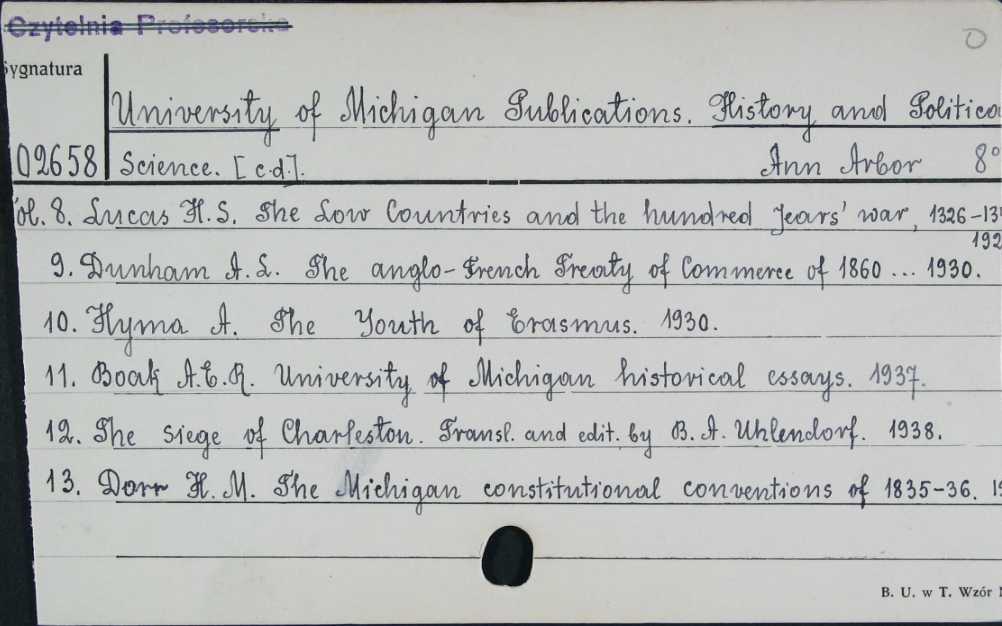 Czytelnia Profesorska
Sygnatura
University of Michigan Publications. History and Politica
02658 Science. [c.d.]. Ann Arbor 8°
Vol. 8. Lucas H.S. The Low Countries and the hundred Years' war, 1326-13
192
9. Dunham A.L. The anglo-French Treaty of Commerce of 1860 ... 1930.
10. Hyma A. The Youth of Erasmus. 1930.
11. Boak A.E.R. University of Michigan historical essays. 1937.
12. The siege of Charleston. Transl. and edit. by B.A. Uhlendorf. 1938.
13. Dorr H.M. The Michigan constitutional conventions of 1835-36. 19
B. U. w T. Wzór